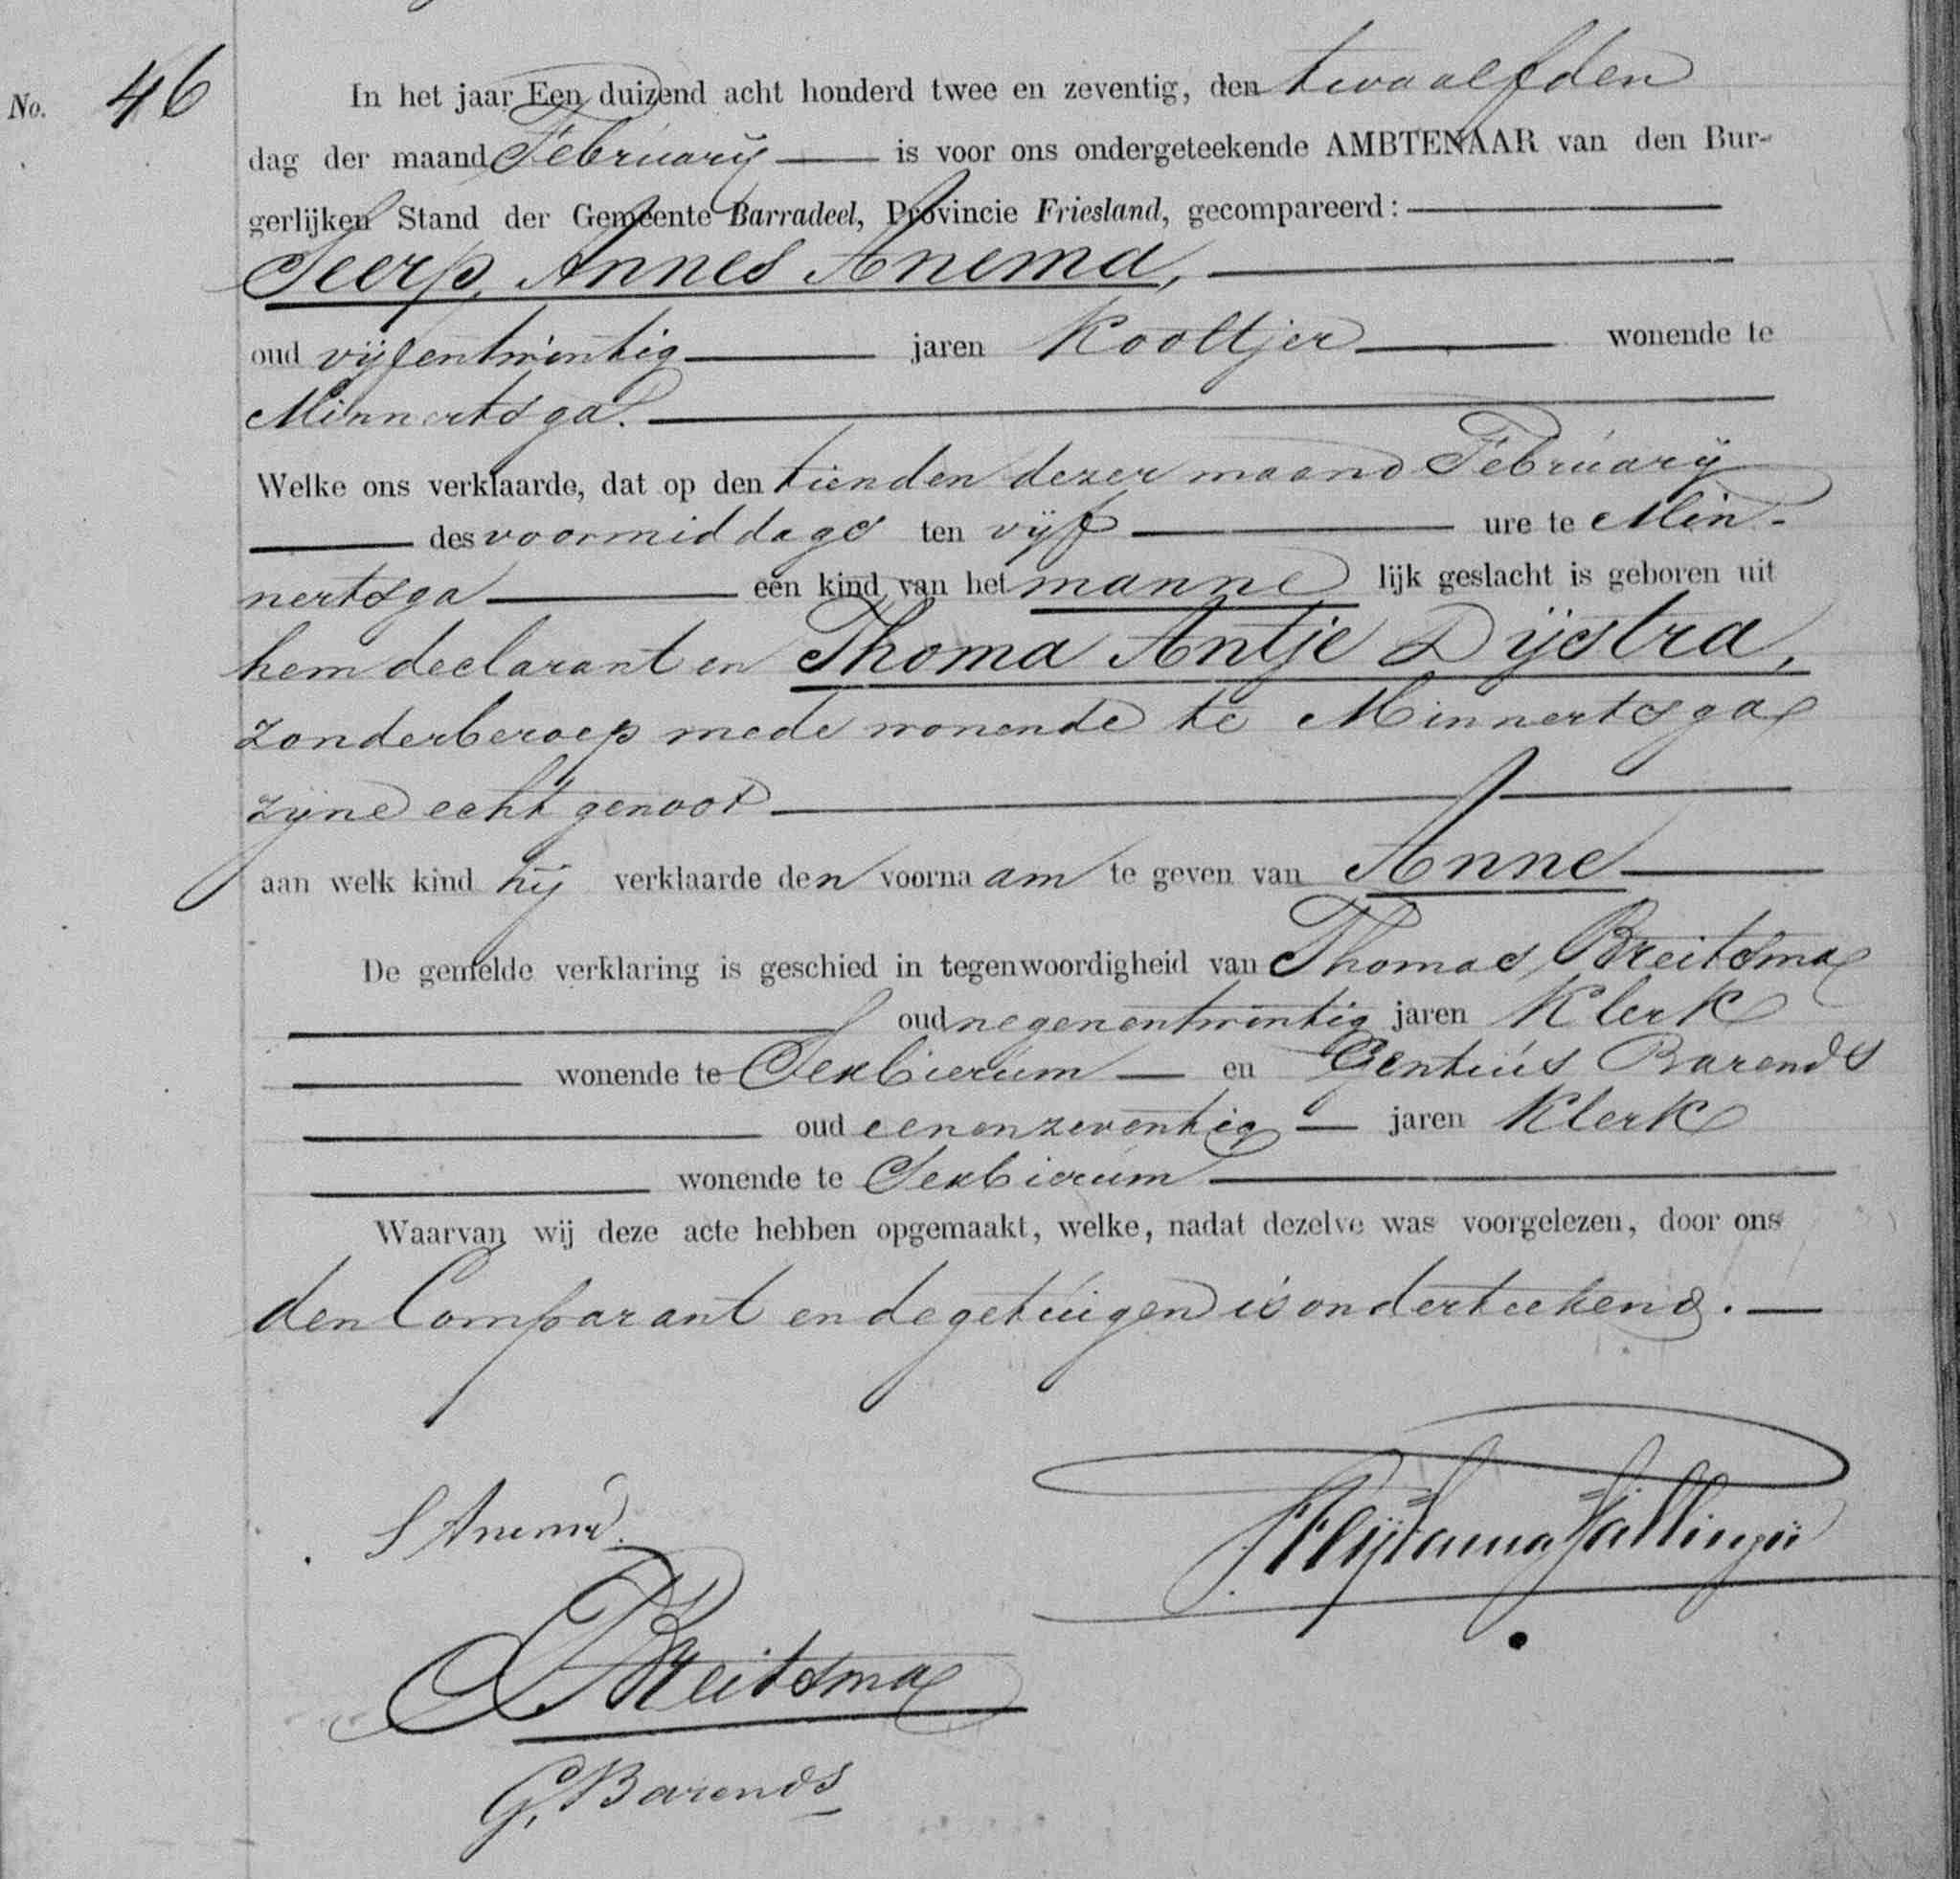 No. 46
In het jaar Een duizend acht honderd twee en zeventig, den twaalfden
dag der maand February is voor ons ondergeteekende AMBTENAAR van den Bur-
gerlijken Stand der Gemeente Barradeel, Provincie Friesland, gecompareerd:
Seerp Annes Anema,
oud vijfentwintig jaren Kooltjer wonende te
Minnertsga.
Welke ons verklaarde, dat op den tienden dezer maand February
des voormiddags ten vijf ure te Min-
nertsga een kind van het manne lijk geslacht is geboren uit
hem declarant en Thoma Antje Dijstra,
zonder beroep mede wonende te Minnertsga
zijne echtgenoot
aan welk kind hij verklaarde den voornaam te geven van Anne
De gemelde verklaring is geschied in tegenwoordigheid van Thomas Breitsma
oud negenentwintig jaren Klerk
wonende te Sexbierum en Gentius Barends
oud eenenzeventig jaren Klerk
wonende te Sexbierum
Waarvan wij deze acte hebben opgemaakt, welke, nadat dezelve was voorgelezen, door ons
den Comparant en de getuigen is onderteekend.
S Anema
T Breitsma
G. Barends